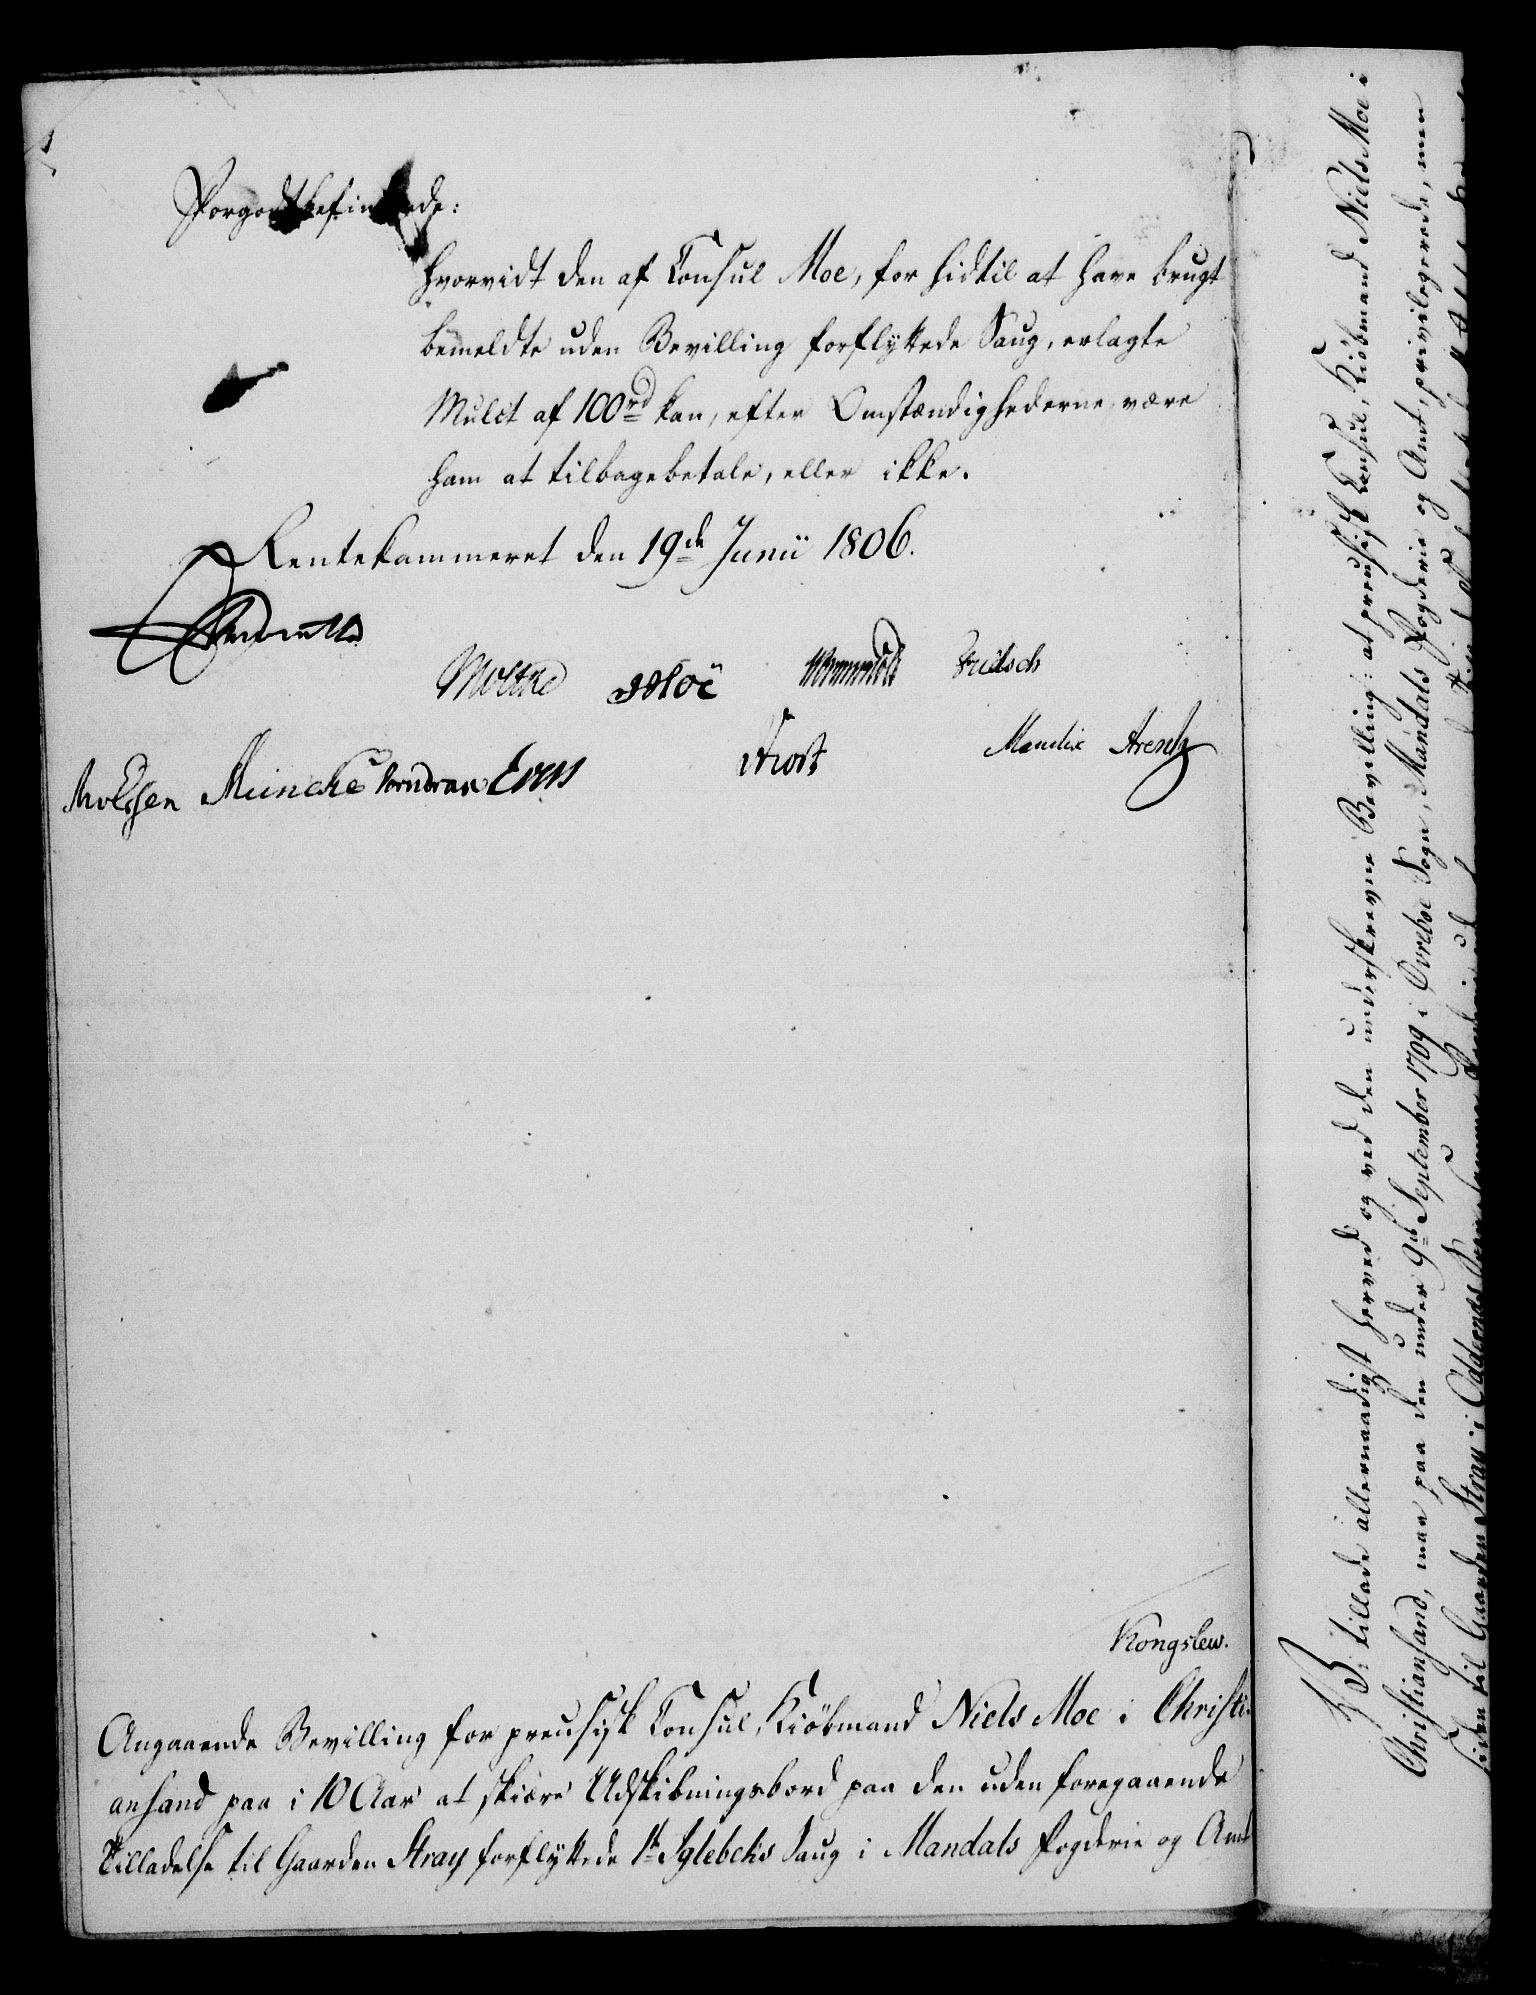 Forgodtbefindende:
hvorvidt den af Consul Moe, for hidtil at have brugt
bemeldte uden Bevilling forflyttede Saug, erlagte
Mulct af 100 rd kan, efter Omstændighederne, være
ham at tilbagebetale, eller ikke.
Rentekammeret den 19de Junii 1806.
Moltke Fridsch
Meincke Evers Mandix Arentz
Kongslew.
Angaaende Bevilling for preusisk Consul, Kiöbmand Niels Moe i Christi-
ansand paa i 10 Aar at skiære Udskibningsbord paa den uden foregaaende
Tilladelse til Gaarden Stray forflyttede 1te Iglebcks Saug i Mandals Fogderie og Amt
Vi tillade allernaadigst herved og ved den underskrevne Bevilling: at preusisk Consul, Kiöbmand Niels Moe i
Christiansand, maa paa den under 9de September 1709 i Øvreboe Sogn, Mandals Fogderie og Amt, privilegerede, men
siden til Gaarden Stray i Oddernes